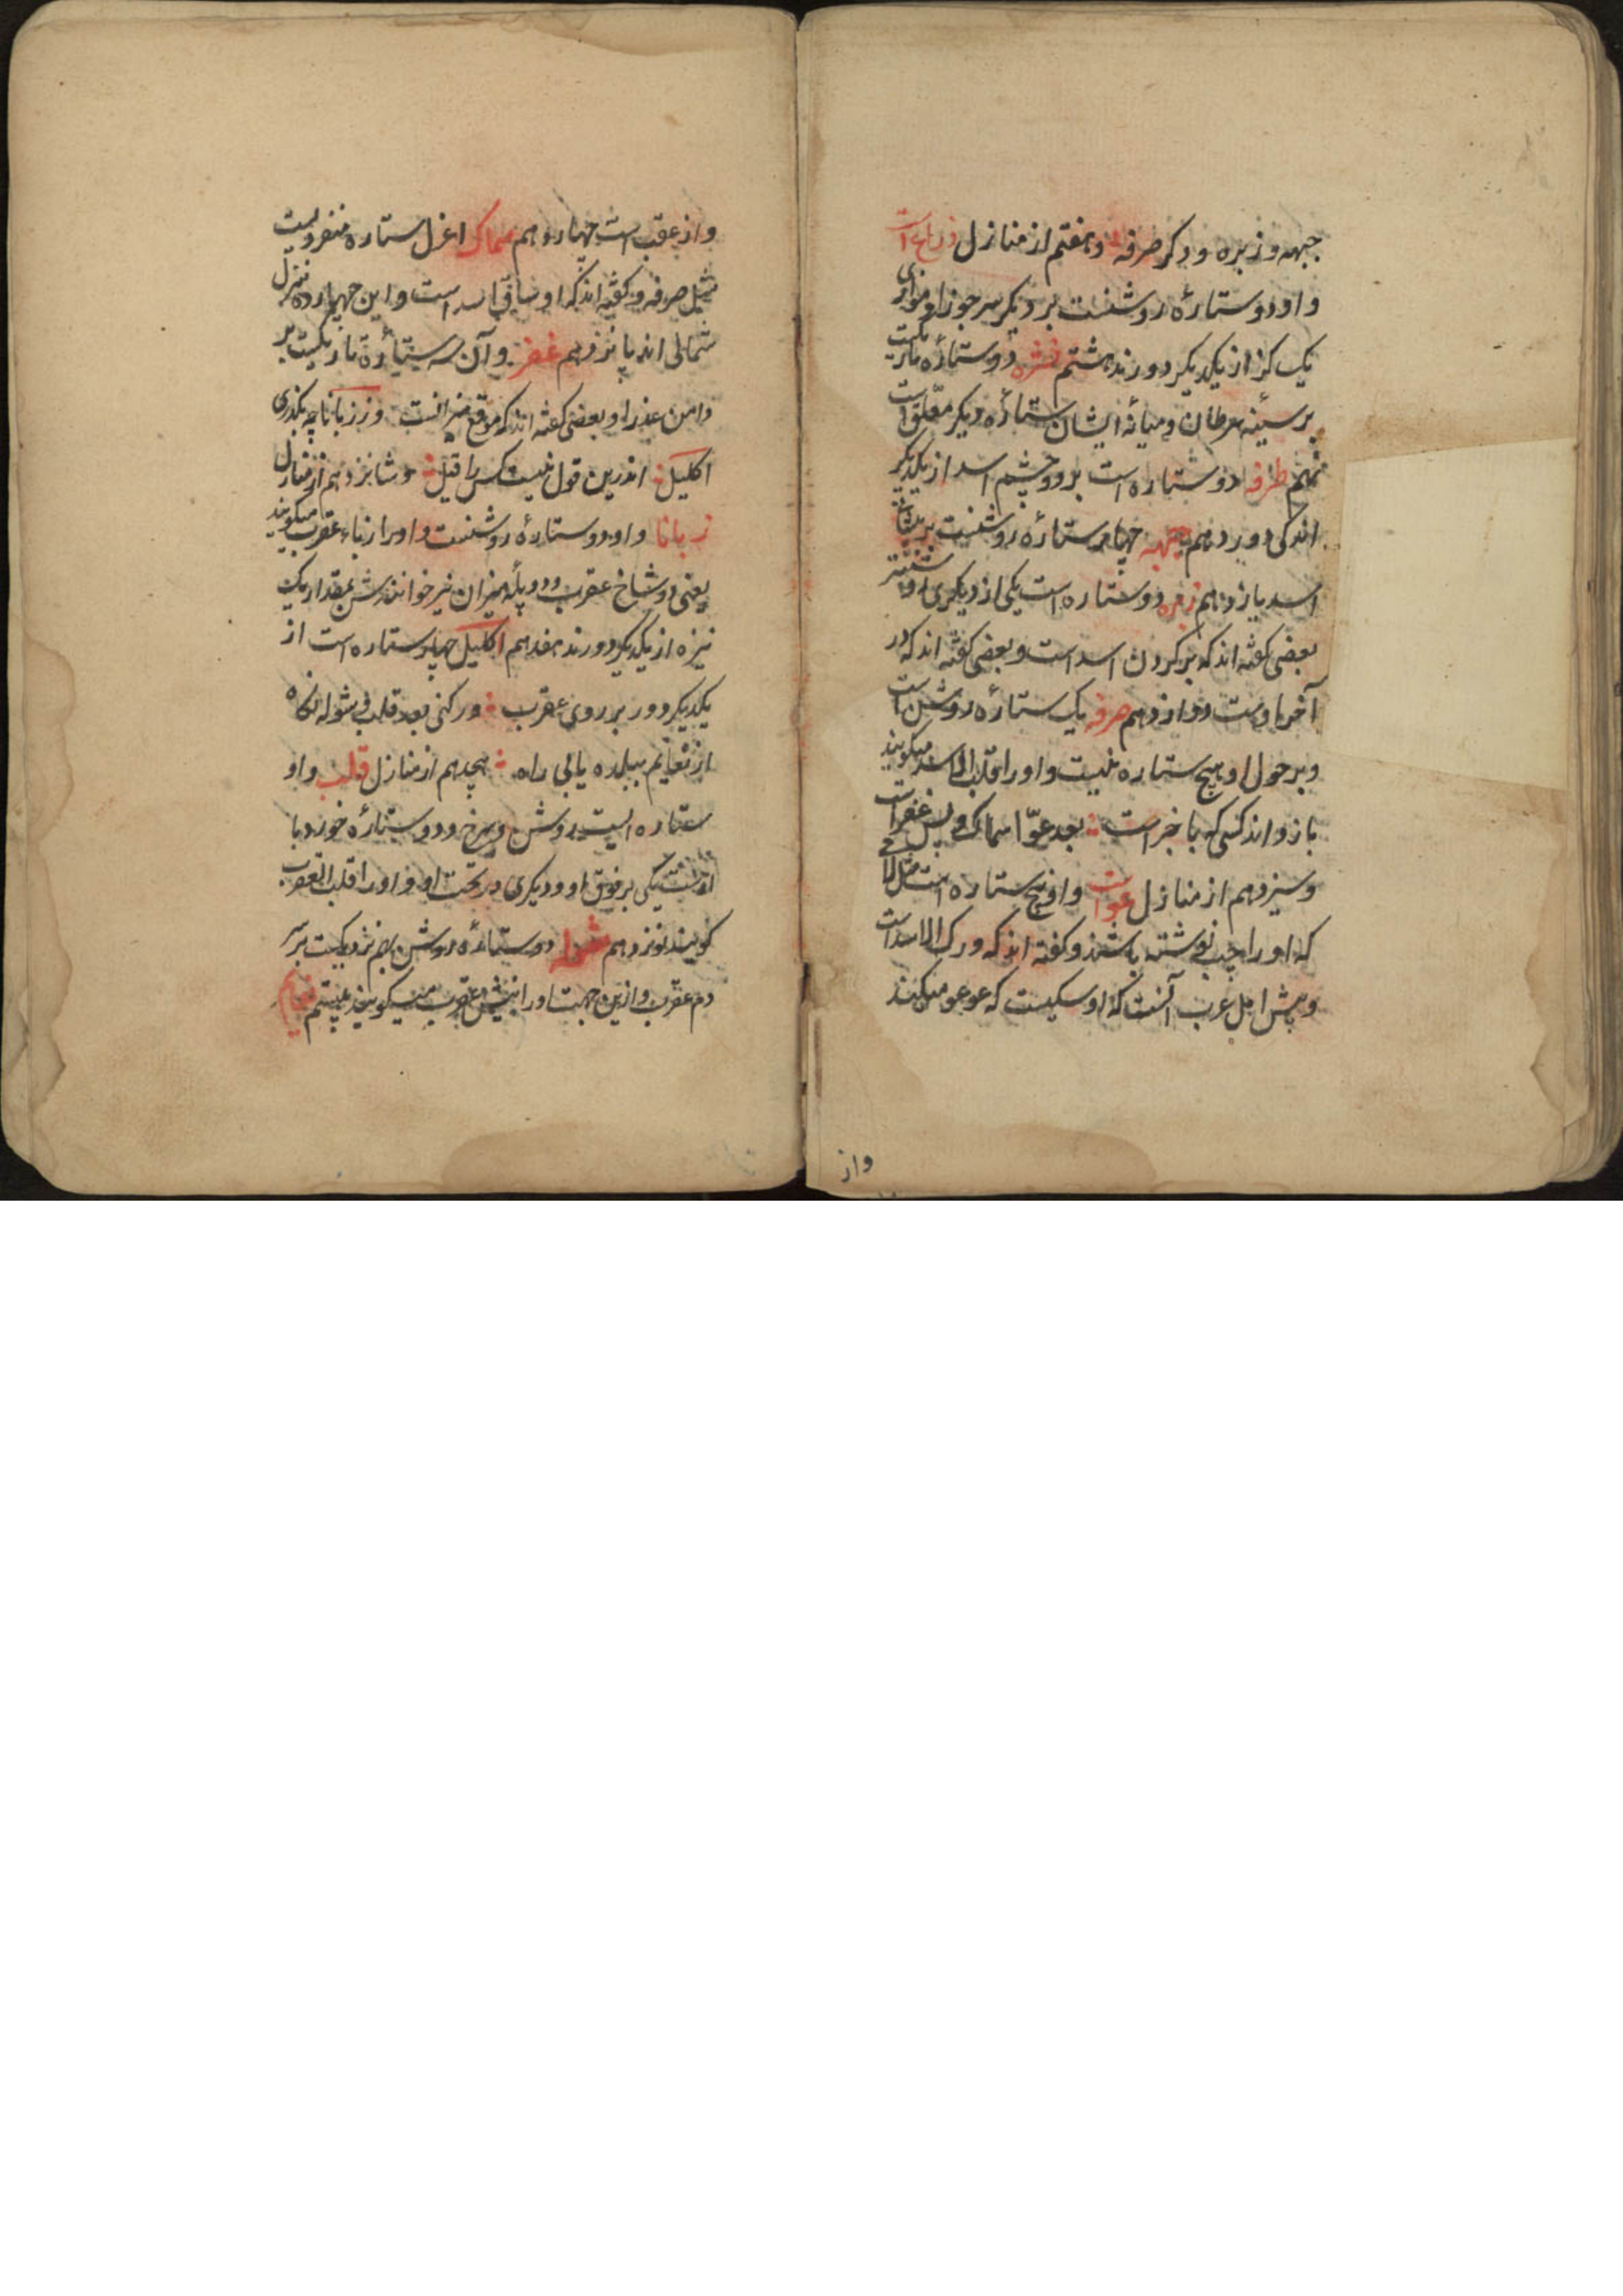 جبهه و زبره و دکر صرفه و هفتم از منازل ذراع است
و او دو ستارۀ روشنست بر دیگر سر جوزا و موازی
یک کز از یکدیکر دورند هشتم نثره دو ستاره باریکیست
بر سینه سرطان و میانه ایشان ستاره دیکر معلق است
نهم طرفه دو ستاره است بر دو چشم اسد از یکدیکر
اندکی دور دهم جبهه چهار ستارۀ روشنست بر پیشانی
اسد یازدهم زبره دو ستاره است یکی از دیکری روشنتر
بعضی کفته اند که بر کردن اسد است و بعضی کفته اند که در
آخر اوست دوازدهم صرفه یک ستاره روشن است
و بر حول او هیچ ستاره نیست و او را قلب الاسد میکویند
باز داند کسی که با خبر است بعد عوّا سماک و پس غفر است
و سیزدهم از منازل عوا است و او پنج ستاره است مثل لا
که او را چپ نوشته باشند و کفته اند که ورک الاسد است
و پیش اهل عرب آنست که او سکیست که عوعو میکند
واز
و از عقب است چهاردهم سماک اعزل ستاره منفردیست
مثل صرفه و کفته اند که او ساق اسد است و این چهارده منزل
شمالی اند پانزدهم غفر و آن سه ستارۀ تاریکیست بر
دامن عذرا و بعضی کفته اند که موقع میزانست وز زبانا چه بکذری
اکلیل اندرین قول نیست کس را قیل و شانزدهم از منازل
زبانا و او دو ستارۀ روشنست و او را زباء عقرب میکویند
یعنی دو شاخ عقرب و دو پلّه میزان نیز خوانندش بمقدار یک
نیزه از یکدیکر دورند هفدهم اکلیل چهار ستاره است از
یکدیکر دور بر روی عقرب ور کنی بعد قلب و شوله نکاه
از نعایم ببلده یابی راه هجدهم از منازل قلب و او
ستاره ایست روشن و سرخ و دو ستارۀ خورد با
اوست یکی بر فوق او و دیکری در تحت او و او را قلب العقرب
کویند نوزدهم شوله دو ستارۀ روشن بهم نزدیکیست بر سر
دم عقرب و ازین جهت او را نیش عقرب میکویند بیستم نعایم